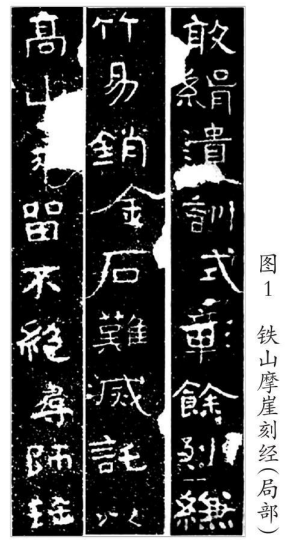 敢緝遺訓式彰餘烈縑
竹易銷金石難滅託以
高山永留不絕尋師
图1 铁山摩崖刻经(局部)